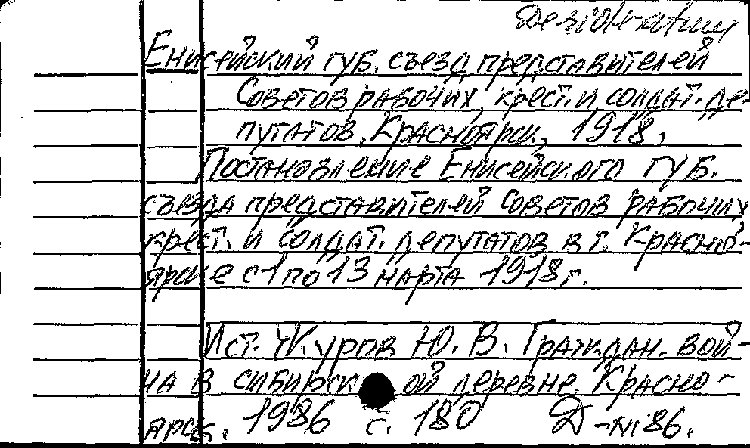 Desideratum
Енисейский губ. съезд представителей
Советов рабочих, крест. и солдат. де-
путатов, Красноярск, 1918,
Постановление Енисейского губ.
съезда представителей Советов рабочих,
крест. и солдат. депутатов в г. Красно-
ярске с 1 по 13 марта 1918 г.
Ист. Журов Ю. В. Граждан. вой-
на в сибирской деревне. Красно-
ярск. 1986 с. 180 Д-№86.